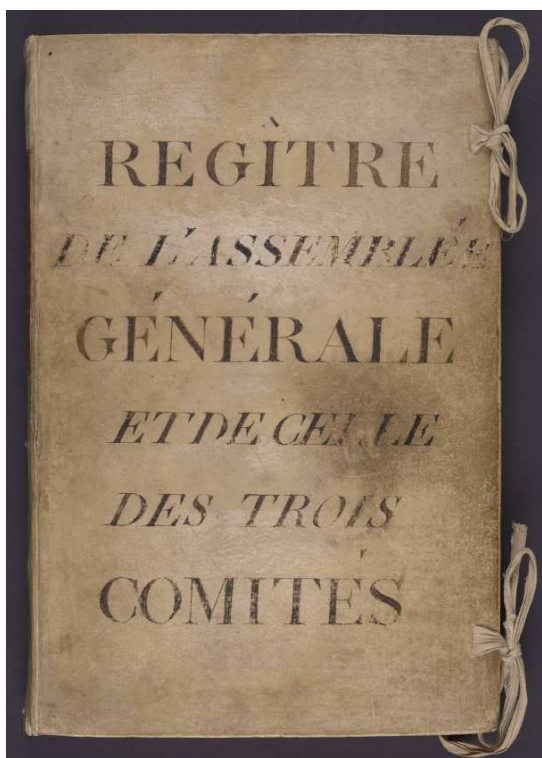 REGÌTRE
DE L'ASSEMBLÉE
GÉNÉRALE
ET DE CELLE
DES TROIS
COMITÉS